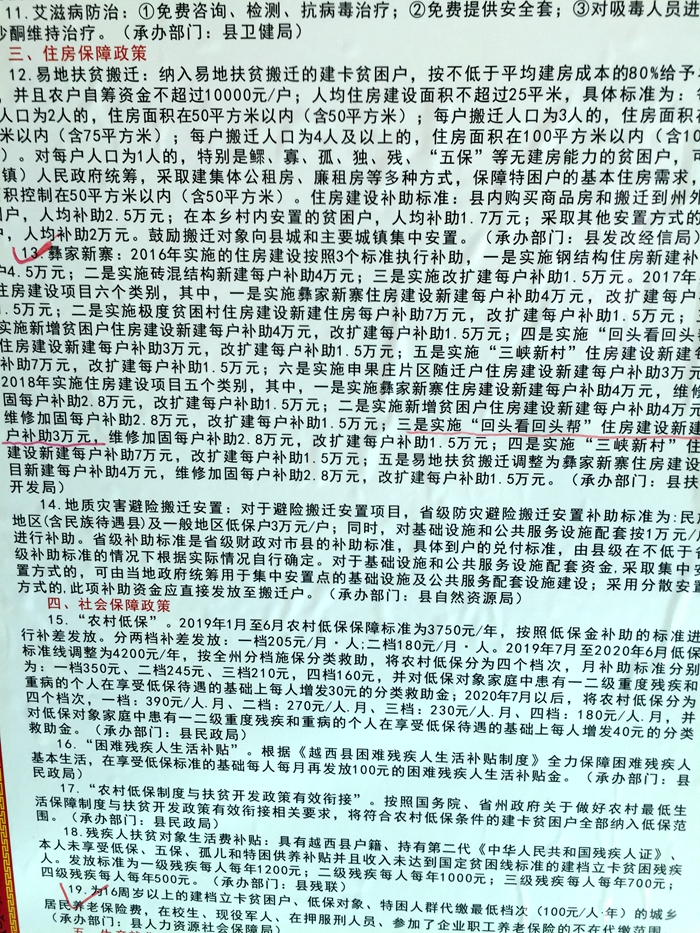 11.艾滋病防治：①免费咨询、检测、抗病毒治疗；②免费提供安全套；③对吸毒人员进
沙酮维持治疗。（承办部门：县卫健局）
三、住房保障政策
12.易地扶贫搬迁：纳入易地扶贫搬迁的建卡贫困户，按不低于平均建房成本的80%给予
，并且农户自筹资金不超过10000元/户；人均住房建设面积不超过25平米，具体标准为：
人口为2人的，住房面积在50平方米以内（含50平方米）；每户搬迁人口为3人的，住房面积
米以内（含75平方米）；每户搬迁人口为4人及以上的，住房面积在100平方米以内（含10
）。对每户人口为1人的，特别是鳏、寡、孤、独、残、“五保”等无建房能力的贫困户，
镇）人民政府统筹，采取建集体公租房、廉租房等多种方式，保障特困户的基本住房需求，
积控制在50平方米以内（含50平方米）。住房建设补助标准：县内购买商品房和搬迁到州外
户，人均补助2.5万元；在本乡村内安置的贫困户，人均补助1.7万元；采取其他安置方式的
，人均补助2万元。鼓励搬迁对象向县城和主要城镇集中安置。（承办部门：县发改经信局）
13.彝家新寨：2016年实施的住房建设按照3个标准执行补助，一是实施钢结构住房新建补
户4.5万元；二是实施砖混结构新建每户补助4万元；三是实施改扩建每户补助1.5万元。2017年
住房建设项目六个类别，其中，一是实施彝家新寨住房建设新建每户补助4万元，改扩建每户
.5万元；二是实施极度贫困村住房建设新建住房每户补助7万元，改扩建每户补助1.5万元；
实施新增贫困户住房建设新建每户补助4万元，改扩建每户补助1.5万元；四是实施“回头看回头帮
住房建设新建每户补助3万元，改扩建每户补助1.5万元；五是实施“三峡新村”住房建设新建每
补助7万元，改扩建每户补助1.5万元；六是实施申果庄片区随迁户住房建设每户补助3万元
2018年实施住房建设项目五个类别，其中，一是实施彝家新寨住房建设新建每户补助4万元，维修
固每户补助2.8万元，改扩建每户补助1.5万元；二是实施新增贫困户住房建设新建每户补助4万元
维修加固每户补助2.8万元，改扩建每户补助1.5万元；三是实施“回头看回头帮”住房建设新建
户补助3万元，维修加固每户补助2.8万元，改扩建每户补助1.5万元；四是实施“三峡新村”住
建设新建每户补助7万元，改扩建每户补助1.5万元；五是易地扶贫搬迁调整为彝家新寨住房建设
目新建每户补助4万元，维修加固每户补助2.8万元，改扩建每户补助1.5万元。（承办部门：县扶
开发局）
14.地质灾害避险搬迁安置：对于避险搬迁安置项目，省级防灾避险搬迁安置补助标准为：民族
地区（含民族待遇县）及一般地区低保户3万元/户；同时，对基础设施和公共服务设施配套按1万元/
进行补助。省级补助标准是省级财政对市县的补助标准，具体到户的兑付标准，由县级在不低于省
级补助标准的情况下根据实际情况自行确定。对于基础设施和公共服务设施配套资金.采取集中安
置方式的，可由当地政府统筹用于集中安置点的基础设施及公共服务配套设施建设；采用分散安置
方式的.此项补助资金应直接发放至搬迁户。（承办部门：县自然资源局）
四、社会保障政策
15.“农村低保”。2019年1月至6月农村低保保障标准为3750元/年，按照低保金补助的标准进
行补差发放。分两档补差发放：一档205元/月·人；二档180元/月·人。2019年7月至2020年6月低保
标准线调整为4200元/年，按全州分档施保分类救助，将农村低保分为四个档次，月补助标准分别
为：一档350元、二档245元、三档210元，四档160元，并对低保对象家庭中患有一二级重度残疾和
重病的个人在享受低保待遇的基础上每人增发30元的分类救助金；2020年7月以后，将农村低保分为
四个档次，一档：390元/人.月、二档：270元/人.月、三档：230元/人.月、四档：180元/人.月，并
对低保对象家庭中患有一二级重度残疾和重病的个人在享受低保待遇的基础上每人增发40元的分类
救助金。（承办部门：县民政局）
16.“困难残疾人生活补贴”。根据《越西县困难残疾人生活补贴制度》全力保障困难残疾人
基本生活，在享受低保标准的基础每人每月再发放100元的困难残疾人生活补贴金。（承办部门：县
民政局）
17.“农村低保制度与扶贫开发政策有效衔接”。按照国务院、省州政府关于做好农村最低生
活保障制度与扶贫开发政策有效衔接相关要求，将符合农村低保条件的建卡贫困户全部纳入低保范
围。（承办部门：县民政局）
18.残疾人扶贫对象生活费补贴：具有越西县户籍、持有第二代《中华人民共和国残疾人证》、
本人未享受低保、五保、孤儿和特困供养补贴并且收入未达到国定贫困线标准的建档立卡贫困残疾
人。发放标准为一级残疾每人每年1200元；二级残疾每人每年1000元；三级残疾每人每年700元；
四级残疾每人每年500元。（承办部门：县残联）
19.为16周岁以上的建档立卡贫困户、低保对象、特困人群代缴最低档次（100元/人·年）的城乡
居民养老保险费，在校生、现役军人、在押服刑人员、参加了企业职工养老保险的不在代缴范围
（承办部门：县人力资源社会保障局）